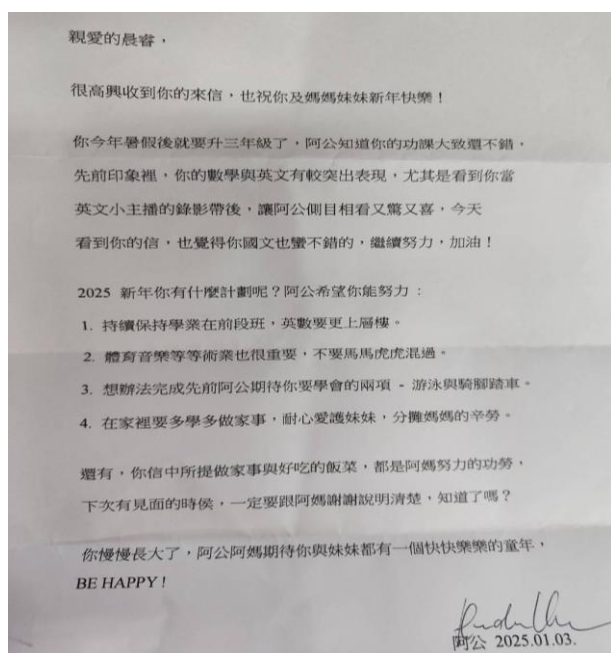 親愛的晨睿，
很高興收到你的來信，也祝你及媽媽妹妹新年快樂！
你今年暑假後就要升三年級了，阿公知道你的功課大致還不錯，
先前印象裡，你的數學與英文有較突出表現，尤其是看到你當
英文小主播的錄影帶後，讓阿公側目相看又驚又喜，今天
看到你的信，也覺得你國文也蠻不錯的，繼續努力，加油！
2025 新年你有什麼計劃呢？阿公希望你能努力：
1. 持續保持學業在前段班，英數要更上層樓。
2. 體育音樂等等術業也很重要，不要馬馬虎虎混過。
3. 想辦法完成先前阿公期待你要學會的兩項 - 游泳與騎腳踏車。
4. 在家裡要多學多做家事，耐心愛護妹妹，分攤媽媽的辛勞。
還有，你信中所提做家事與好吃的飯菜，都是阿媽努力的功勞，
下次有見面的時侯，一定要跟阿媽謝謝說明清楚，知道了嗎？
你慢慢長大了，阿公阿媽期待你與妹妹都有一個快快樂樂的童年，
BE HAPPY！
阿公 2025.01.03.